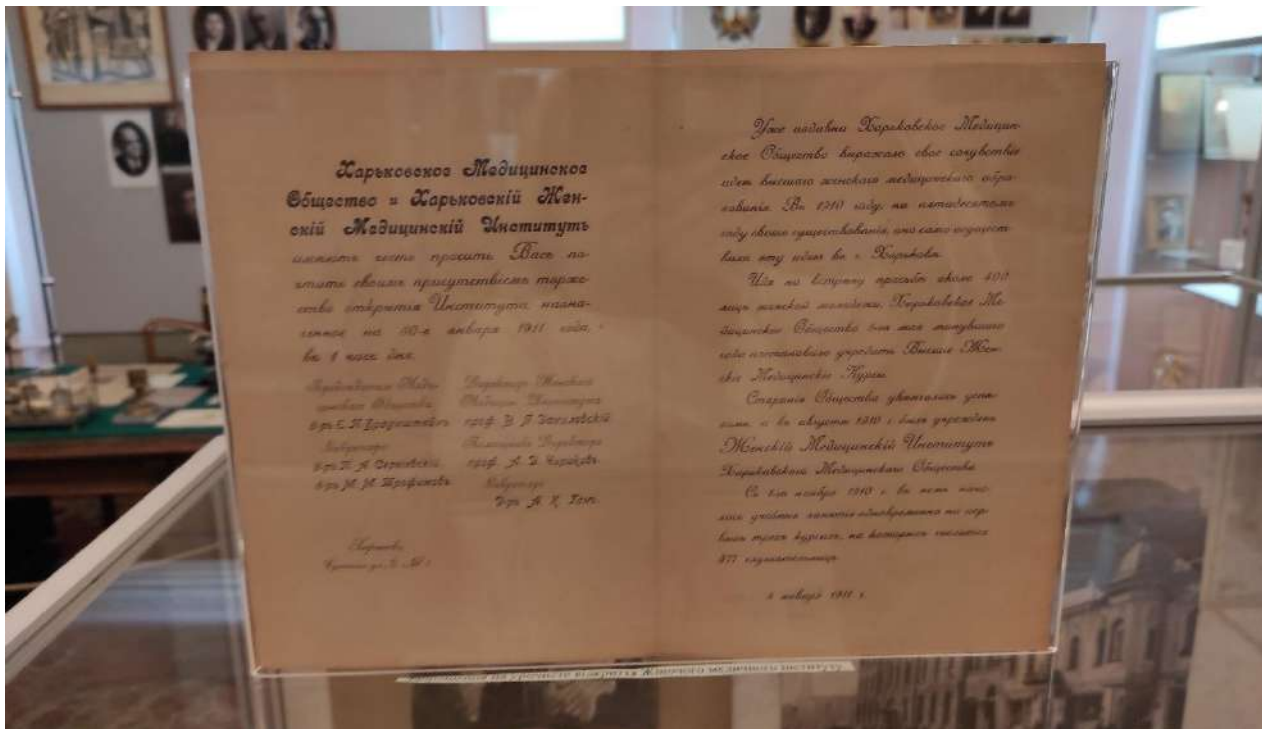 Харьковское Медицинское
Общество и Харьковскій Жен-
скій Медицинскій Институтъ
имѣютъ честь просить Васъ по-
чтить своимъ присутствіемъ торже-
ство открытія Института, назна-
ченное на 30-е января 1911 года,
въ 1 часъ дня.
Медицинскаго Общества
Секретари
Д-ръ М. М. Трофимовъ
Директоръ Женскаго
Медицин. Института
проф.
Помощникъ Директора
проф. А.
Секретарь
Д-ръ А.
Харьковъ,
Уже издавна Харьковское Медицин-
ское Общество выражало свое сочувствіе
идеѣ высшаго женскаго медицинскаго обра-
зованія. Въ 1910 году, на пятидесятомъ
году своего существованія, оно само осущест-
вило эту идею въ г. Харьковѣ.
Идя на встрѣчу просьбѣ около 400
лицъ женской молодежи, Харьковское Ме-
дицинское Общество мая минувшаго
года постановило учредить Высшіе Жен-
скіе Медицинскіе Курсы.
Старанія Общества увѣнчались успѣ-
хомъ, и въ августѣ 1910 г. былъ учрежденъ
Женскій Медицинскій Институтъ
Харьковскаго Медицинскаго Общества.
Съ 1-го ноября 1910 г. въ немъ нача-
лись учебныя занятія одновременно на пер-
выхъ трехъ курсахъ, на которыхъ числится
477 слушательницъ.
января 1911 г.
Запрошення на урочисте відкриття Жіночого медичного інституту